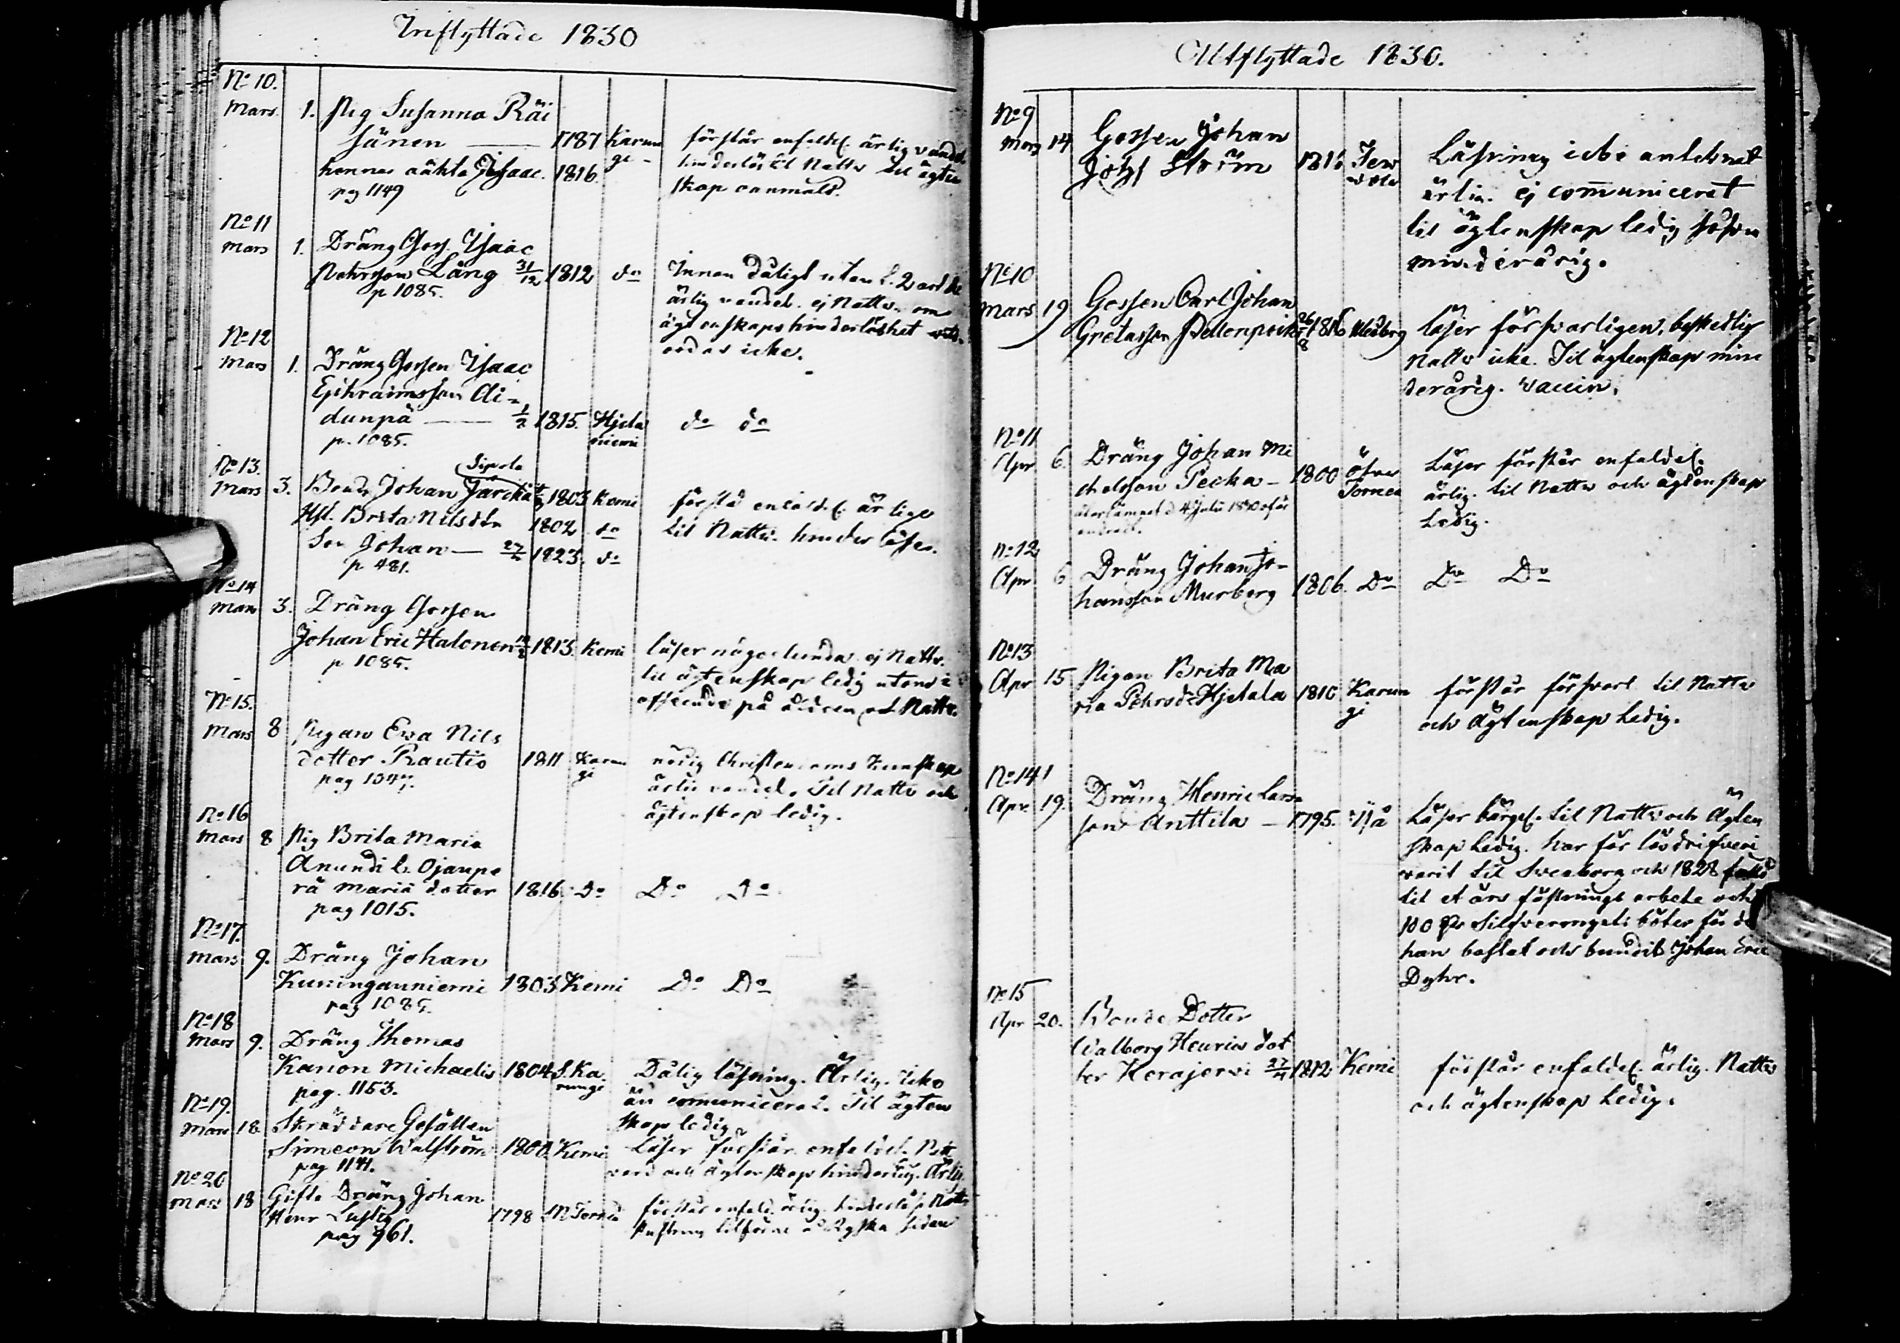 Inflyttade 1830
No 10.
Mars 1. Pig Susanna Räi
sänen — 1787 Karun
gi
hennes oäkta Isaac. 1816.
pg 1149
förstår enfaldel. ärlig vandel
hinderlös til Nattv til ägten
skap oanmäld.
No 11
Mars 1. Dräng Goss. Isaac
Pehrsson Lång 31/12 1812 do
p 1085.
Innan dåligt utan l.
ärlig vandel. ej Nattv. om
ägtenskaps hinderlöshet
ordas icke.
No 12
Mars 1. Dräng Gossen Isaac
Ephraimsson Ai-
dunpä — 1815. Hjeta
niemi
p. 1085.
do do
No 13.
Sipola
Mars 3. Bond. Johan Jarcka 1803 Kemi
Hst. Brita Nilsdtr 1802 do
Son Johan — 1823. do
p 481.
förstå enfaldel. ärlige
til Nattv. hinderlöse.
No 14
Mars 3. Dräng Gossen
Johan Eric Halonen 1813. Kemi
p 1085.
läser någorlunda. ej Nattv.
til ägtenskap ledig utan
afseende på åldren och Nattv.
No 15.
Mars 8 Pigan Eva Nils
dotter Rautio 1811 Karun
gi
pag 1047.
nödig Christendoms kunskap
ärlig vandel. Til Nattv och
ägtenskap ledig.
No 16
Mars 8 Pig Brita Maria
Anundi l. Ojanpe
rä Maria dotter 1816. do
pag 1015.
Do Do
No 17.
Mars 9. Dräng Johan
Kuninganniemi 1803 Kemi
pag 1085.
Do Do
No 18
Mars 9. Dräng Thomas
Kanon Michaelis 1804 S. Ka
rungi
pag. 1153.
Dålig läsning. Ärlig. Icke
än comunicerat. Til ägten
skap ledig
No 19.
Mars 18. Skräddare Gesällen
Simeon Walström 1800. Kemi
pag 1141.
Läser förstår enfaldel. Natt
vard och ägtenskap hinderlös. Ärlig
No 20
Mars 18 Gifte Dräng Johan
Henr Lustig 1798 N Torneå
pag 961.
förstår enfald. ärlig. hinderlös p Nattv
Ryska sidan
Utflyttade 1830.
No 9
Mars 14 Gossen Johan
Johs Ström 1816
Läsning icke antecknat
ärlig. ej com̄uniceret
til ägtenskap ledig såsom
minderårig.
No 10
Mars 19 Gossen Carl Johan
Gretasson Pellenpoika 26/8 1816 Uleåborg
läser försvarligen, beskedlig
Nattv icke. Til ägtenskap min
derårig. vaccin.
No 11
Apr 6. Dräng Johan Mi
chelsson Pecka — 1800 Öfver
Torneå
återlämnat d 4 Julii 1830
Läser förstår enfaldel.
ärlig. til Nattv och ägtenskap
Ledig.
No 12
Apr 6 Dräng Johan Jo-
hansson Murberg 1806. Do
Do Do
No 13
Apr 15 Pigan Brita Ma
ria Pehrsdr Hjetala 1810. Karun
gi
förstår försvarl til Nattv
och Ägtenskap Ledig.
No 14
Apr. 19. Dräng Henric Lars-
son Anttila — 1795. Ijå
Läser bärgel. til Nattv och Ägten
skap Ledig. har för lösdrifveri
varit til Sveaborg och 1828 fälld
til et års fästnings arbete och
100 Silfver böter för det
han bastat och bundit Johan Eric
Dyhr.
No 15
Apr 20. Bonde Dotter
Walborg Henrics dot
ter Kerajervi 27/4 1812 Kemi
förstår enfaldel. ärlig. Nattv
och ägtenskap Ledig.